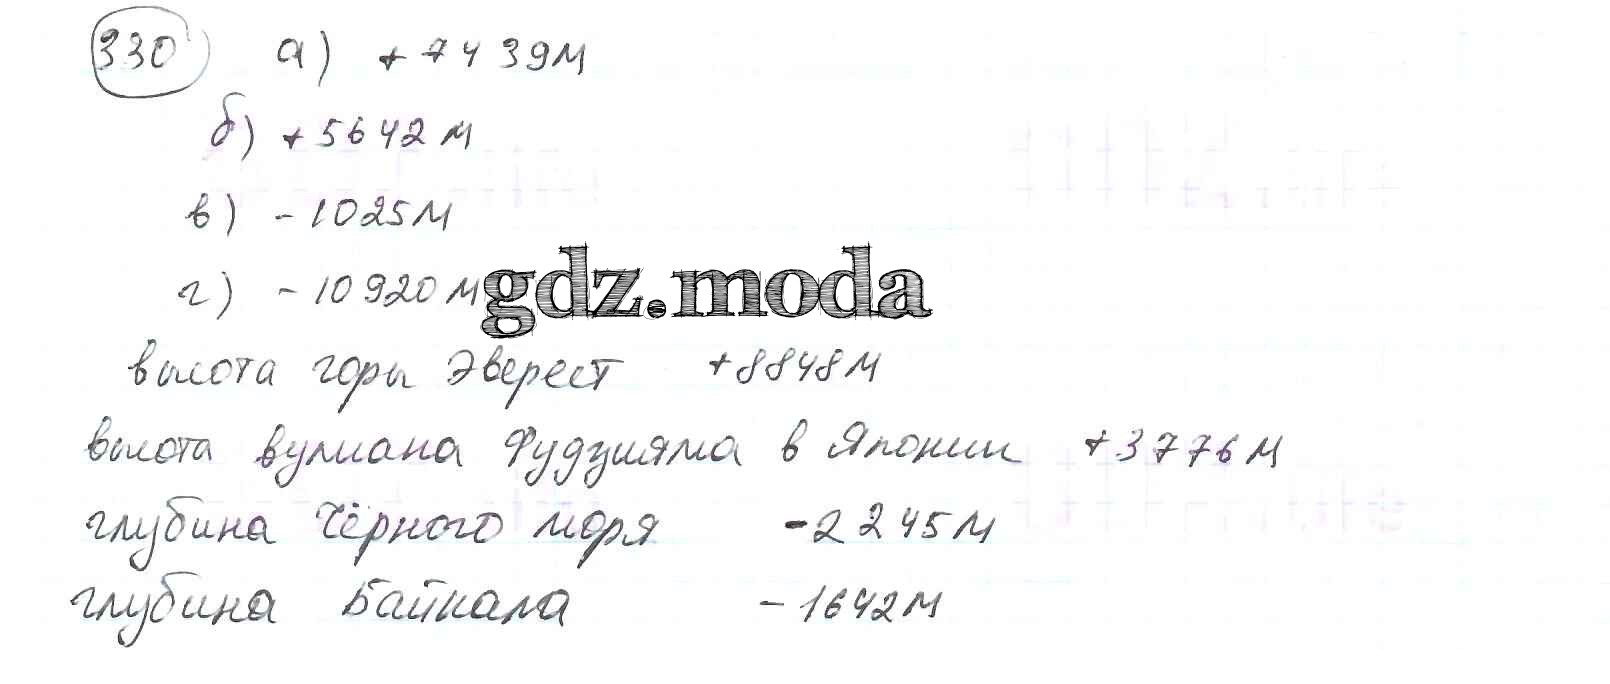 330 а) +7439м
б) +5642м
в) -1025м
г) -10920м
gdz.moda
высота горы Эверест +8848м
высота вулкана Фудзияма в Японии +3776м
глубина Чёрного моря -2245м
глубина Байкала -1642м